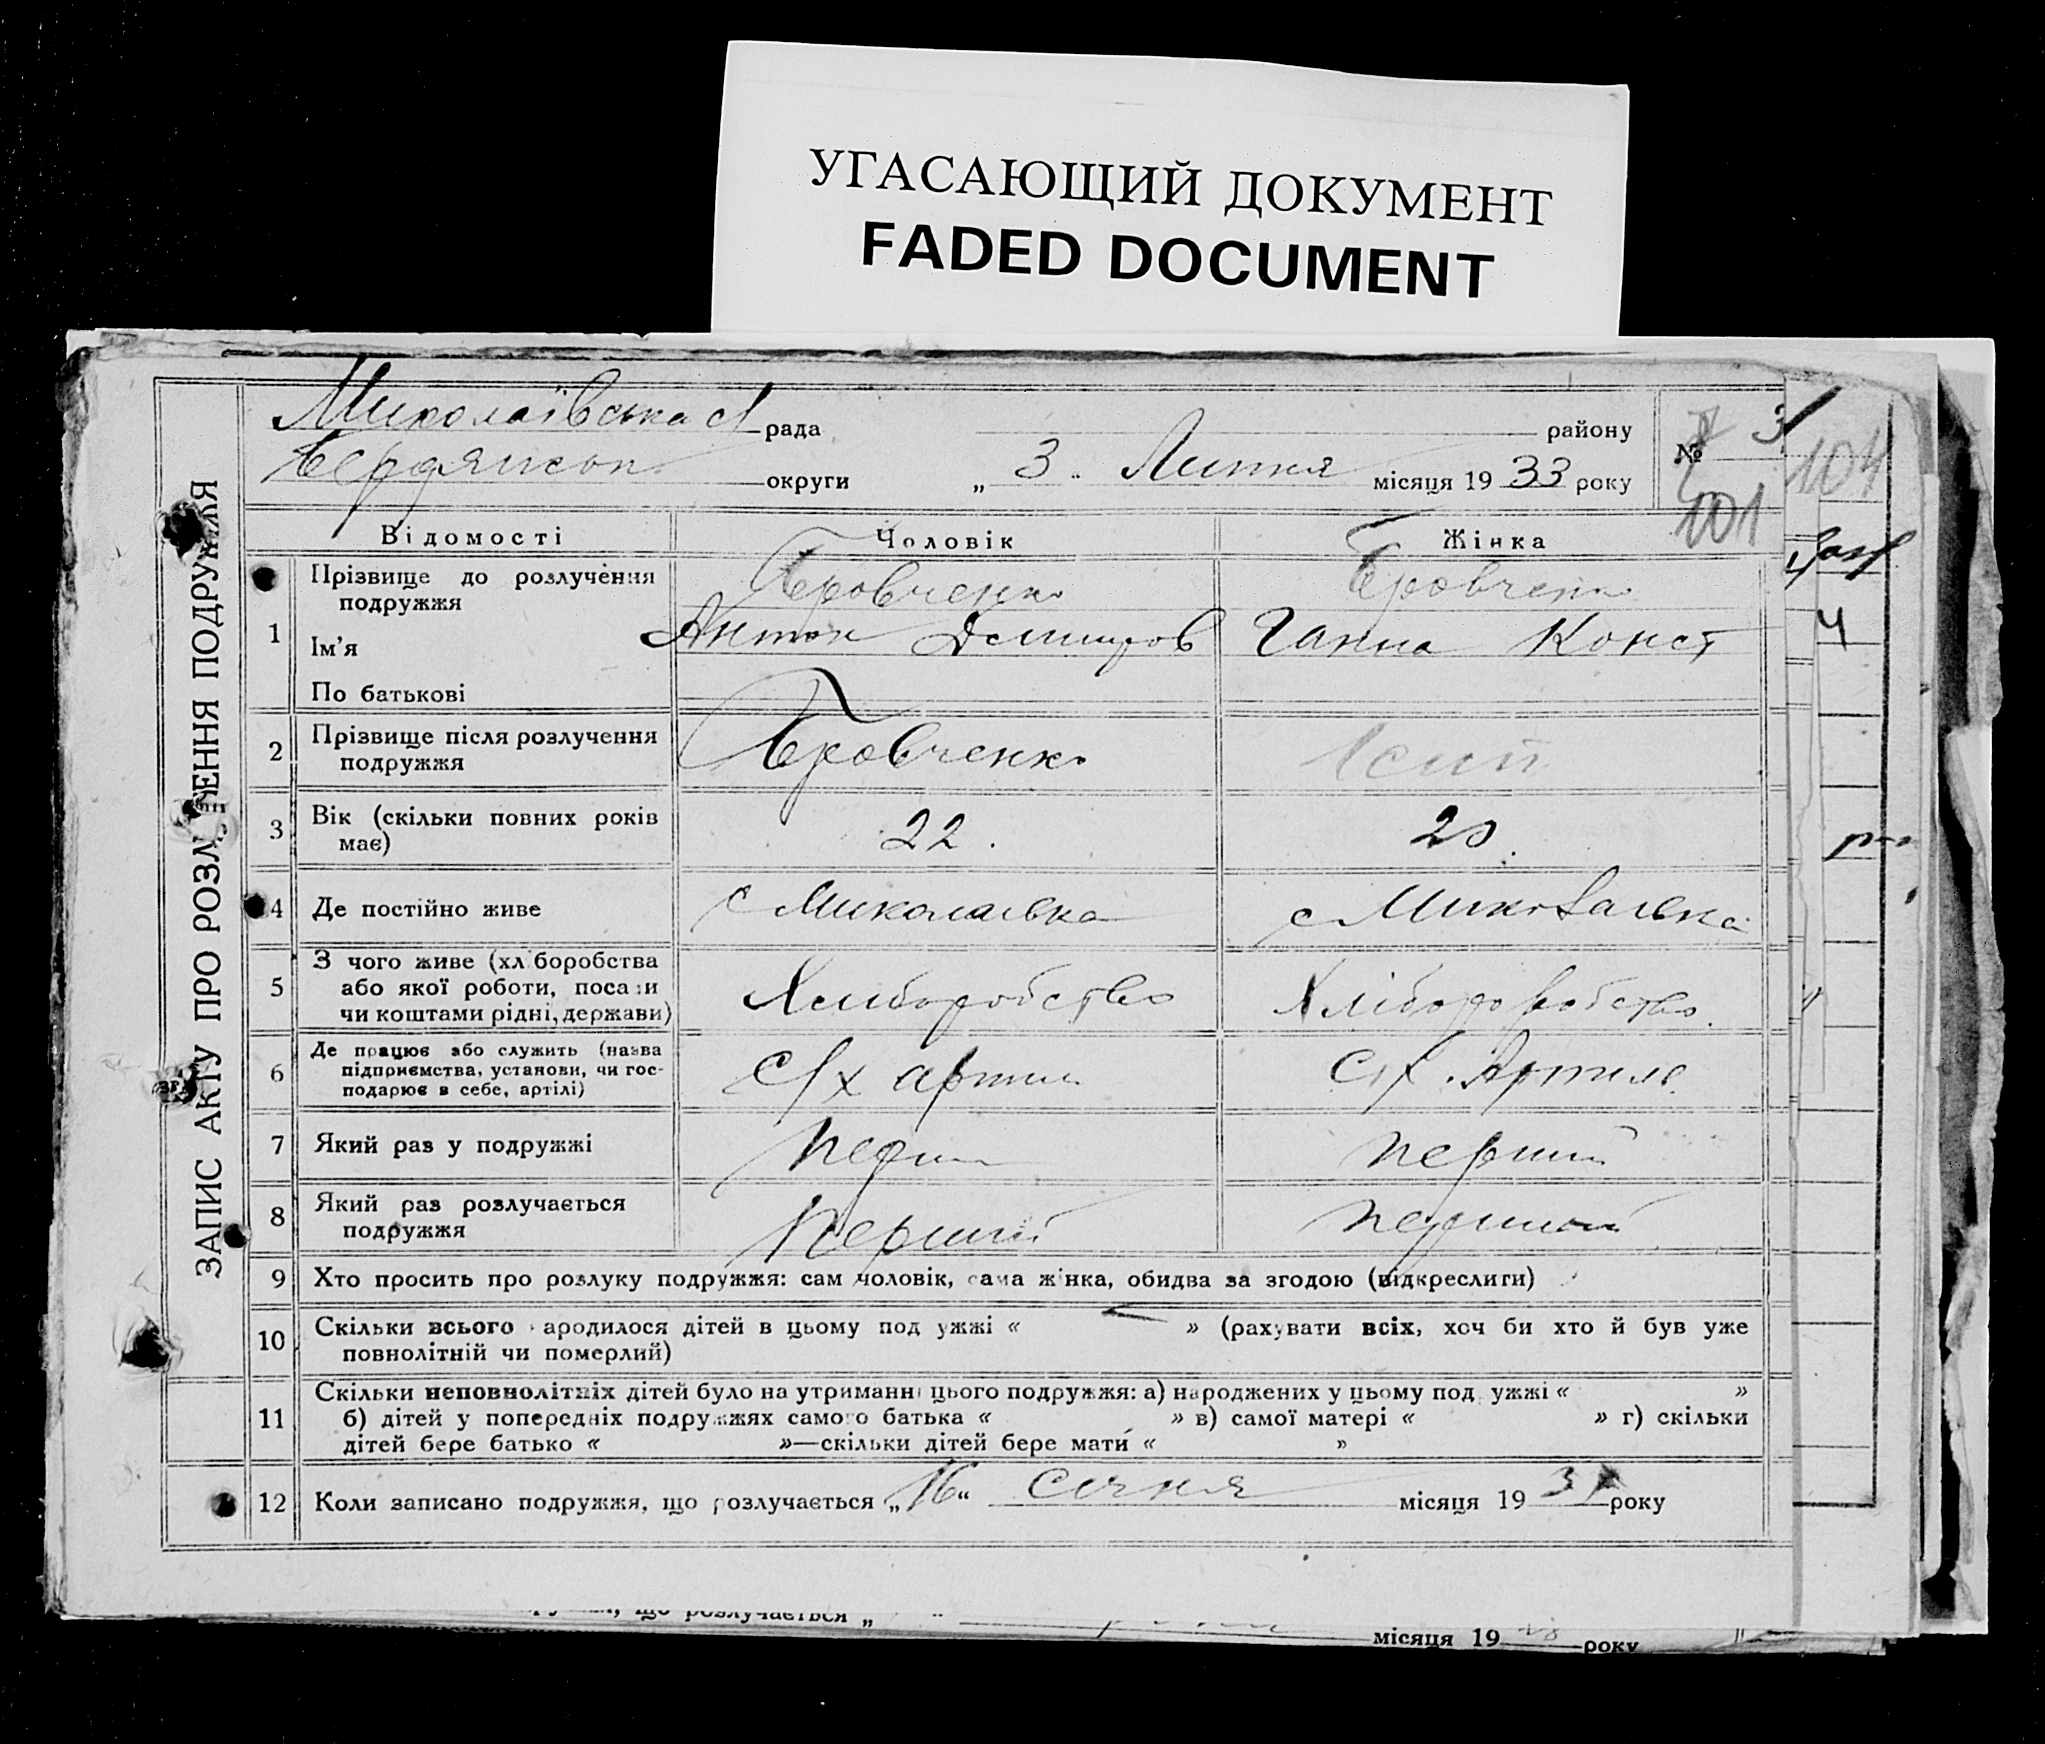 УГАСАЮЩИЙ ДОКУМЕНТ
FADED DOCUMENT
ЗАПИС АКТУ ПРО РОЗЛУЧЕННЯ ПОДРУЖЖЯ
Миколаївська рада району
№ 3
104
округи „ 3 " Лютня місяця 19 33 року
101
Відомості Чоловік Жінка
1 Прізвище до розлучення
подружжя Бровченко Бровченко
Ім'я Антон Ганна Конст
По батькові
2 Прізвище після розлучення
подружжя Бровченко
3 Вік (скільки повних років
має) 22. 20.
4 Де постійно живе с Миколаевка с Миколаевка
5 З чого живе (хліборобства
або якої роботи, посади
чи коштами рідні, держави) Хлиборобство Хліборобство.
6 Де працює або служить (назва
підприємства, установи, чи гос-
подарює в себе, артілі) С/х артил С/х. Артиле
7 Який раз у подружжі перши перший
8 Який раз розлучається
подружжя Перший перший
9 Хто просить про розлуку подружжя: сам чоловік, сама жінка, обидва за згодою (відкреслити)
10 Скільки всього народилося дітей в цьому подружжі « — » (рахувати всіх, хоч би хто й був уже
повнолітній чи померлий)
11 Скільки неповнолітніх дітей було на утриманні цього подружжя: а) народжених у цьому подружжі « »
б) дітей у попередніх подружжях самого батька « » в) самої матері « » г) скільки
дітей бере батько « »—скільки дітей бере мати « »
12 Коли записано подружжя, що розлучається „ 16 " Січня місяця 19 року
що розлучається „ "
місяця 19 року